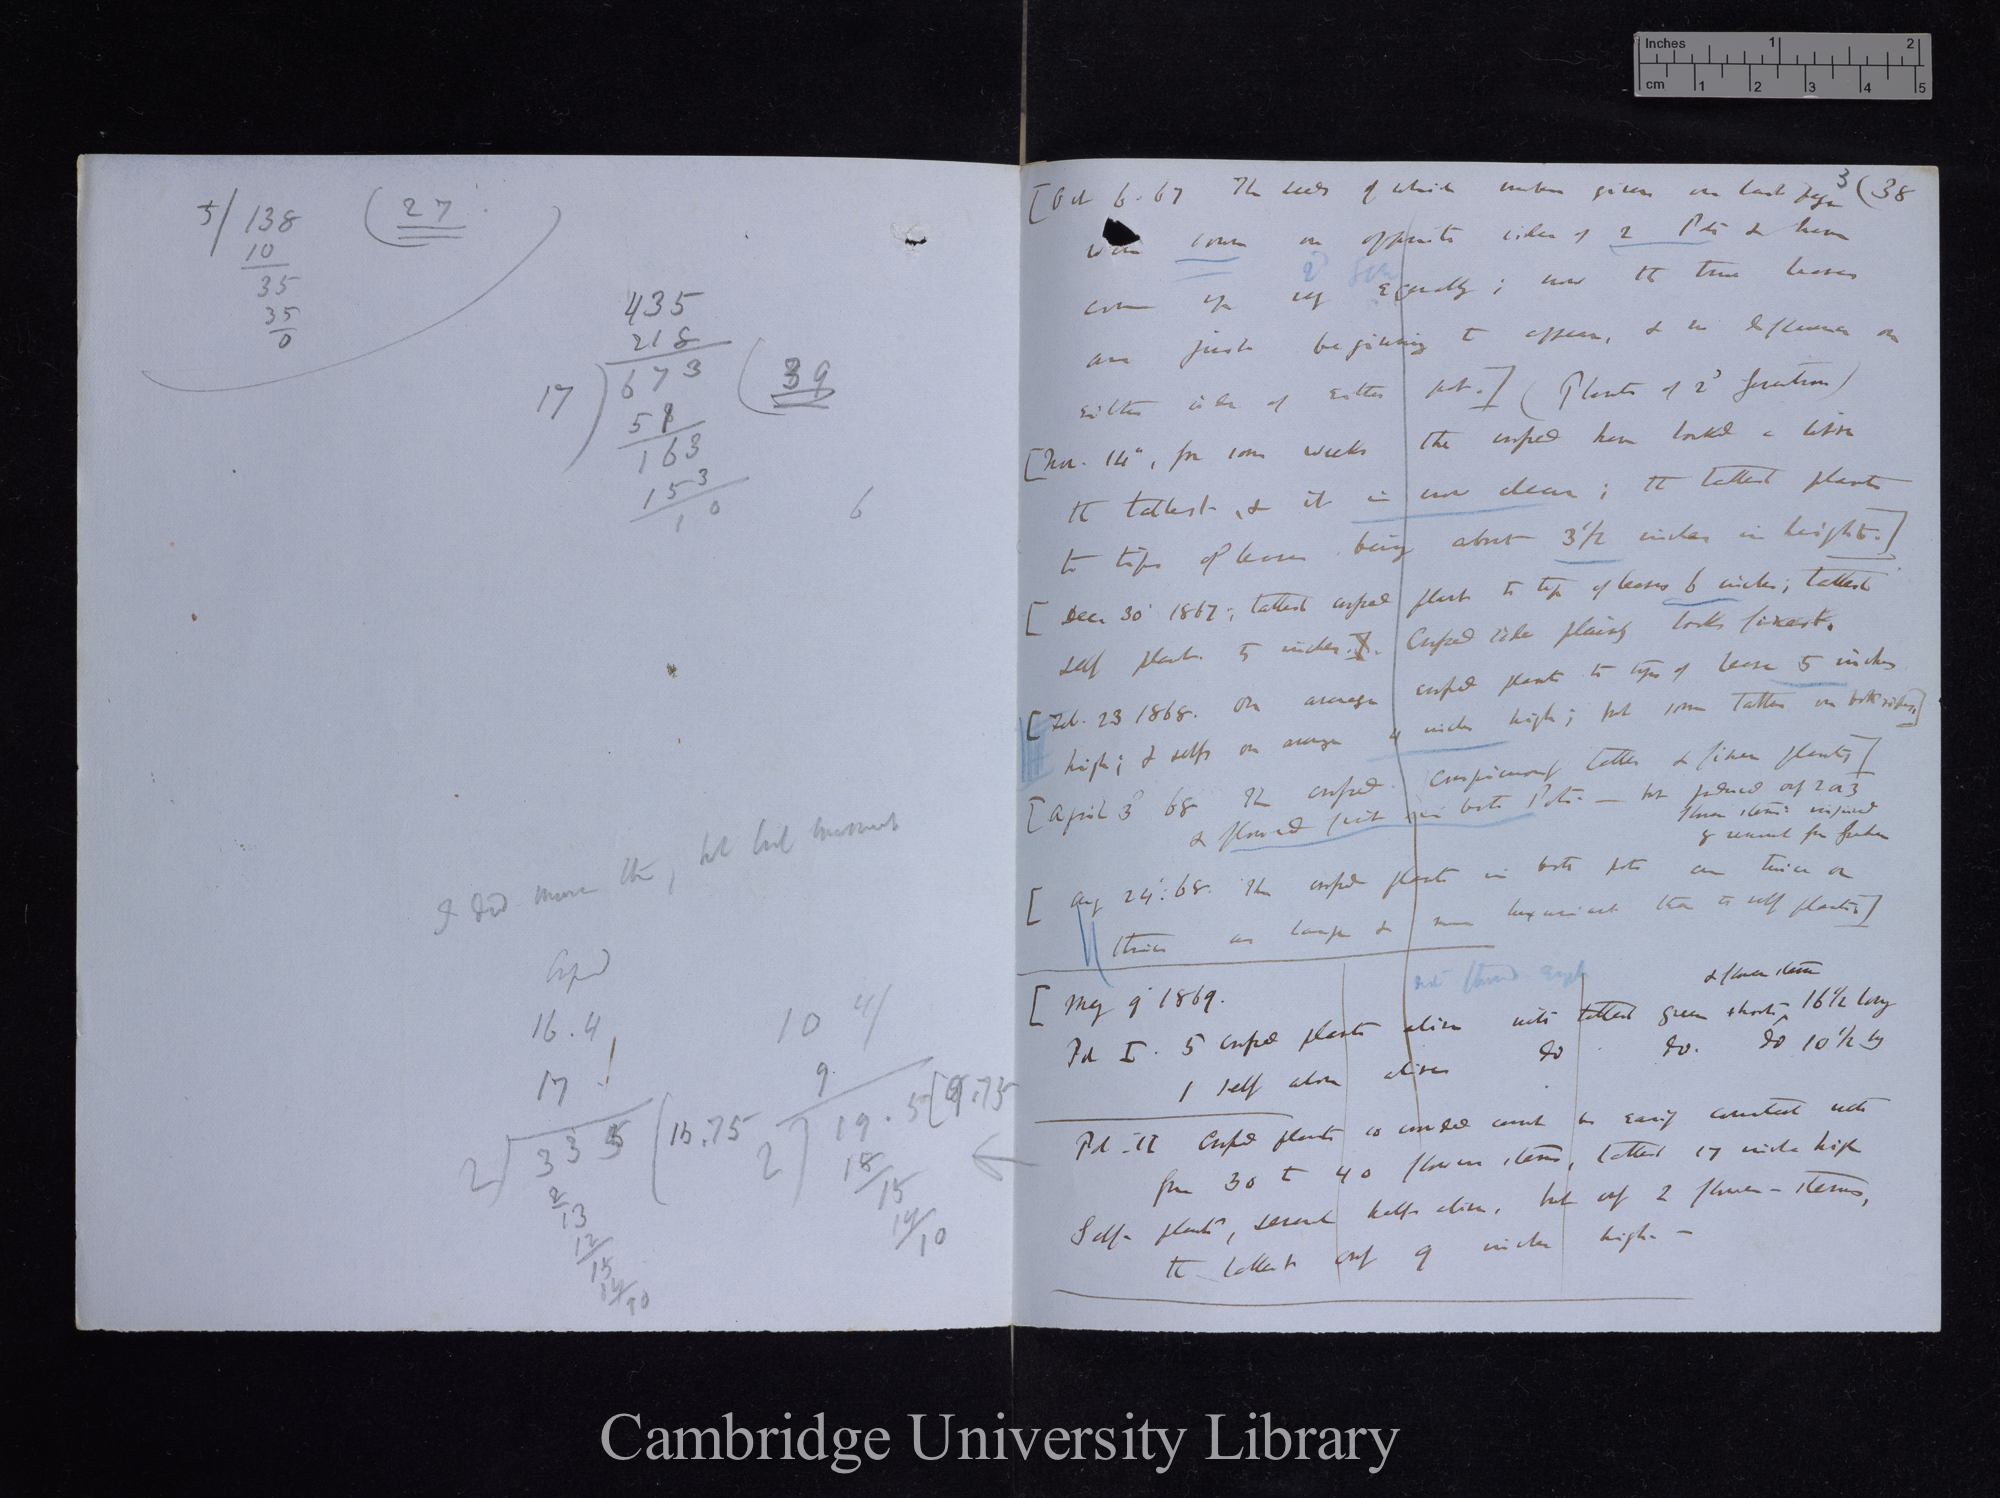 5/ 138 ( 27
10
35
35
0
435
218
17 ) 673 ( 39
58
163
153
10
6
I did move the, but
Cropd
16.4
17
2 ) 33 5 ( 16.75
2
13
12
15
14
10
10 4/
9
2 ) 19.5 [ 9.75
18
15
14
10
Inches 1 2
cm 1 2 3 4 5
3 (38
[Oct 6. 67 The seeds of which number given on last page
were sown on opposite sides of 2 Pots & have
2d Gen
come up very equally; now the true leaves
are just beginning to appear, & no difference on
either side of either pot.] (Plants of 2d Generation)
[Nov. 14th, for some weeks the crossed have looked a little
the tallest, & it is now clear; the tallest plants
to tips of leaves being about 3 1/2 inches in height.]
[Dec 30 1867; tallest crossed plant to tip of leaves 6 inches; tallest
self plant 5 inches. Crossed side plainly looks finest.
[Feb. 23 1868. On average crossed plants to tips of leaves 5 inches
high; & selfs on average 4 inches high; but some taller on both sides.]
[April 3d 68 The crossed conspicuously taller & finer plants]
& flowered first in both Pots. — but produced only 2 or 3
flower stems injured
& removed from
[Aug 24. 68. The crossed plants in both pots are twice or
thrice as large & more luxuriant than the self plants.]
[May 9 1869.
& flower stem
Pot I. 5 crossed plants alive with tallest green shoots, 16 1/2 long
1 self alone alive do do. do 10 1/2 lg
Pot II Crossed plants so crowded cannot be easily counted with
from 30 to 40 flower stems, tallest 17 inches high
Self-plants, several half alive, but only 2 flower-stems,
the tallest only 9 inches high. —
Cambridge University Library